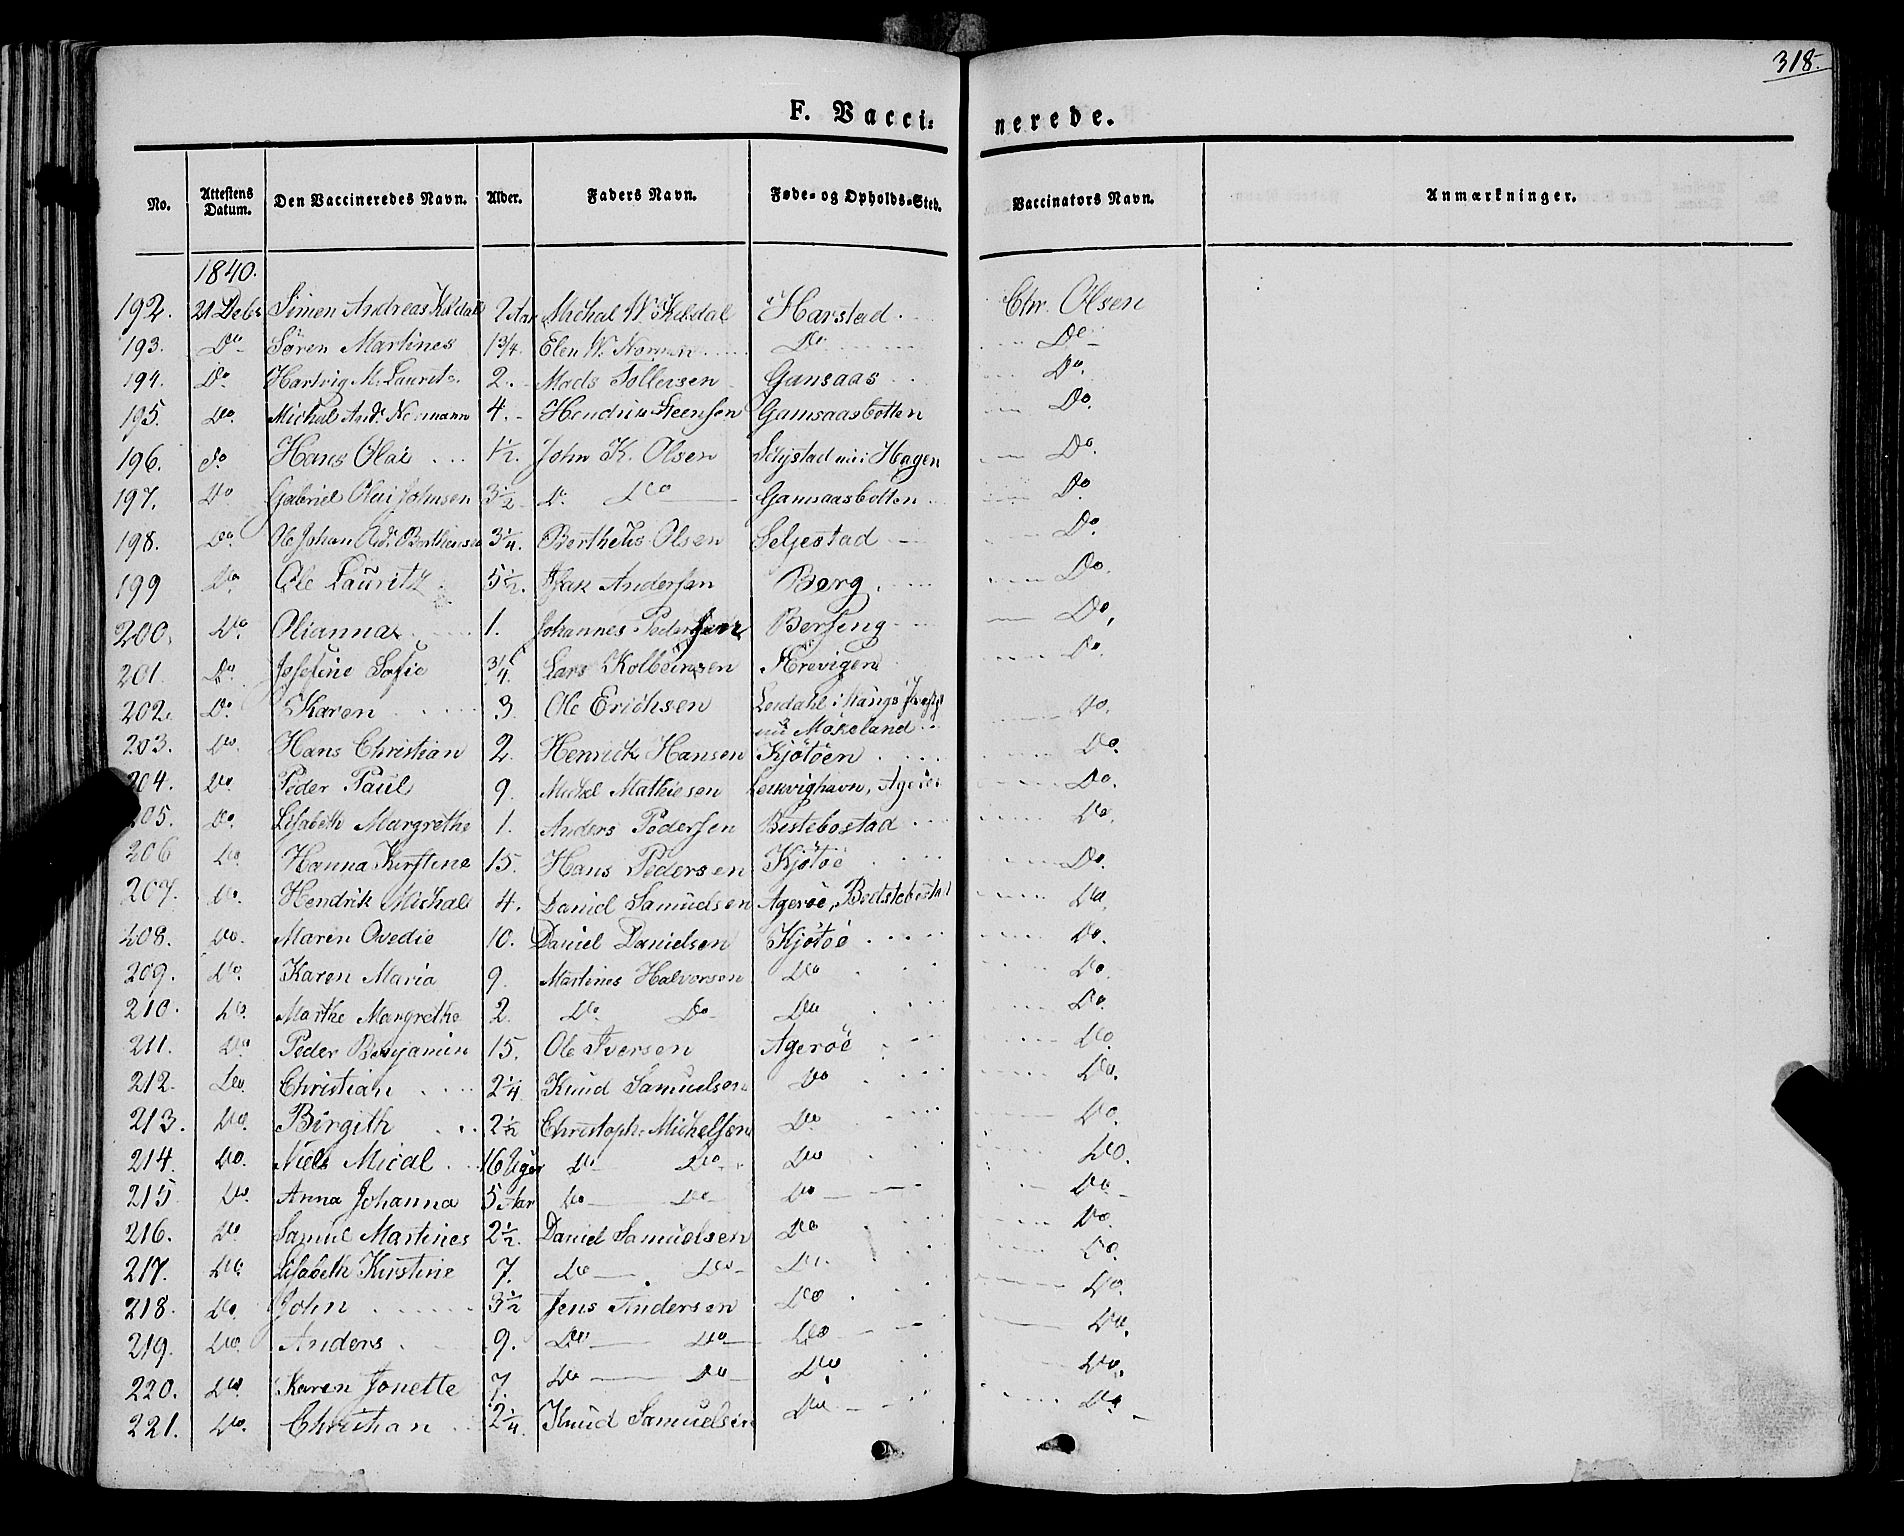 318.
F. Vaccinerede.
No. Attestens Datum. Den Vaccineredes Navn. Alder. Faders Navn. Føde- og Opholds-Sted. Vaccinators Navn. Anmærkninger.
1840.
192. 21 Debr Simon Andreas Keldal 2 Aar Michal W. Keldal Harstad Chr. Olsen
193. Do Sören Martines 1 3/4. Elen W. Norman Do Do
194. Do. Hartvig M. Laurits 2. Mads Tollersen Gansaas Do.
195. Do. Michal Andr. Normann 4. Hendrik Steensen Gamsaasbotten Do.
196. do. Hans Olai 1 1/2. John K. Olsen Hagen Do.
197. Do Gabriel Olai Johnsen 3 1/2 Do. Do Gamsaasbotten Do.
198. Do. Ole Johan Andr. Bertheusen 3/4. Bertheus Olsen Seljestad Do
199 Do. Ole Lauritz 5 1/2. Isak Andersen Berg Do.
200. Do. Olianna 1. Johannes Pedersen Berseng Do.
201. Do. Josefine Sofie 3/4. Lars Kolbeinsen Ærevigen Do.
202. Do. Karen 3. Ole Erichsen Leidahl i Mangs
nu Møkeland Do.
203. Do. Hans Christian 2. Henrick Hansen Kjötöen Do.
204. Do. Peder Paul 9. Michel Mathiesen Do.
205. Do. Lisabeth Margrethe 1. Anders Pedersen Bestebostad Do.
206 Do. Hanna Kirstine 15. Hans Pedersen Kjötöe Do.
207. Do. Hendrik Michal 4. Daniel Samuelsen Ageröe, Do.
208. Do. Maren Ovedie 10. Daniel Danielsen Kjötöe Do.
209. Do. Karen Maria 9. Martines Halvorsen Do Do.
210. Do. Marthe Margrethe 2. Do Do Do Do.
211. Do Peder Benjamin 15. Ole Iversen Ageröe Do.
212. Do. Christian 2 1/4 Knud Samuelsen Do Do.
213. Do. Birgith 2 1/2 Christoph. Michelsen Do. Do.
214. Do. Niels Mical 16 Uger Do Do Do Do.
215 Do. Anna Johanna 5 Aar Do Do Do Do
216. Do Samuel Martines 2 1/2. Daniel Samuelsen Do Do.
217. Do. Lisabeth Kirstine 7. Do Do Do. Do.
218. Do. John 3 1/2 Jens Andersen Do Do.
219. Do. Anders 9. Do Do Do Do.
220. Do. Karen Jonette 7. Do Do Do Do.
221. Do. Christian 2 1/4. Knud Samuelsen Do Do.